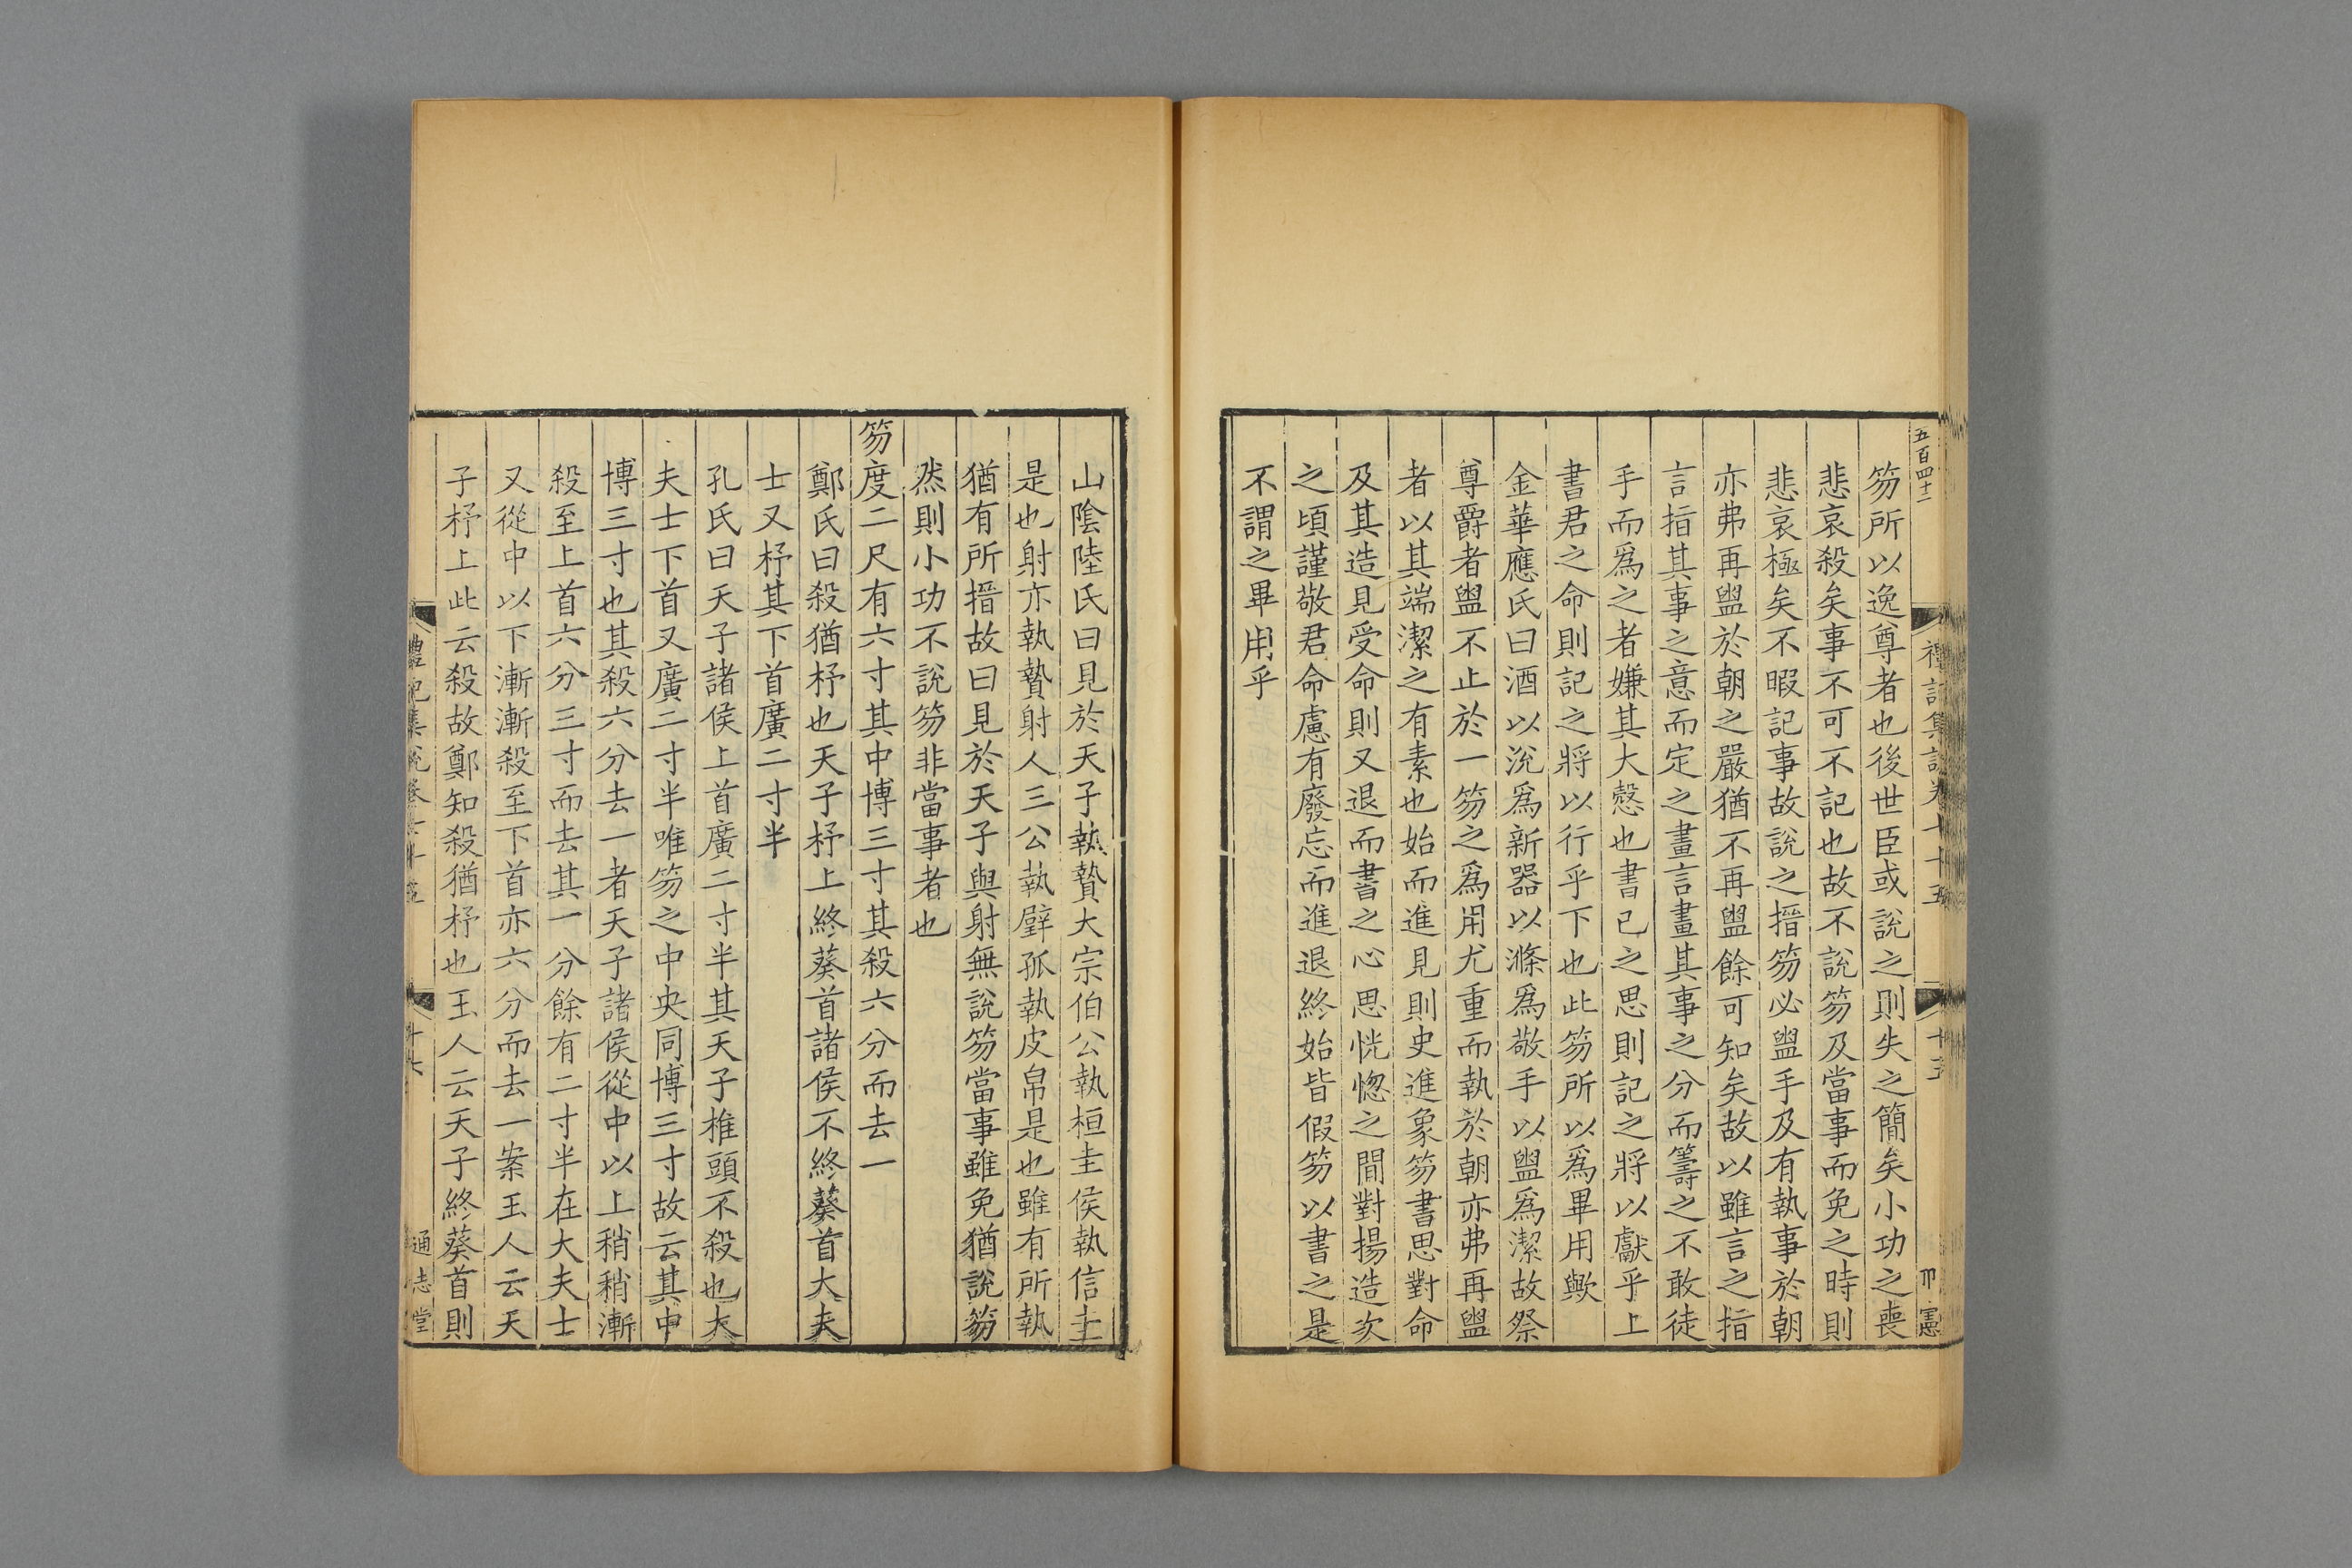 五百四十二
笏所以逸尊者也後世臣或說之則失之簡矣小功之喪
悲哀殺矣事不可不記也故不說笏及當事而免之時則
悲哀極矣不暇記事故說之搢笏必盥手及有執事於朝
亦弗再盥於朝之嚴猶不再盥餘可知矣故以雖言之指
言指其事之意而定之畫言畫其事之分而籌之不敢徒
手而爲之者嫌其大慤也書已之思則記之將以獻乎上
書君之命則記之將以行乎下也此笏所以爲畢用歟
金華應氏曰酒以涗爲新器以滌爲敬手以盥爲潔故祭
尊爵者盥不止於一笏之爲用尤重而執於朝亦弗再盥
者以其端潔之有素也始而進見則史進象笏書思對命
及其造見受命則又退而書之心思恍惚之間對揚造次
之頃謹敬君命慮有廢忘而進退終始皆假笏以書之是
不謂之畢用乎
山陰陸氏曰見於天子執贄大宗伯公執桓圭侯執信圭
是也射亦執贄射人三公執璧孤執皮帛是也雖有所執
猶有所搢故曰見於天子與射無說笏當事雖免猶說笏
然則小功不說笏非當事者也
笏度二尺有六寸其中博三寸其殺六分而去一
鄭氏曰殺猶杼也天子杼上終葵首諸侯不終葵首大夫
士又杼其下首廣二寸半
孔氏曰天子諸侯上首廣二寸半其天子椎頭不殺也大
夫士下首又廣二寸半唯笏之中央同博三寸故云其中
博三寸也其殺六分去一者天子諸侯從中以上稍稍漸
殺至上首六分三寸而去其一分餘有二寸半在大夫士
又從中以下漸漸殺至下首亦六分而去一案玉人云天
子杼上此云殺故鄭知殺猶杼也玉人云天子終葵首則
通志堂